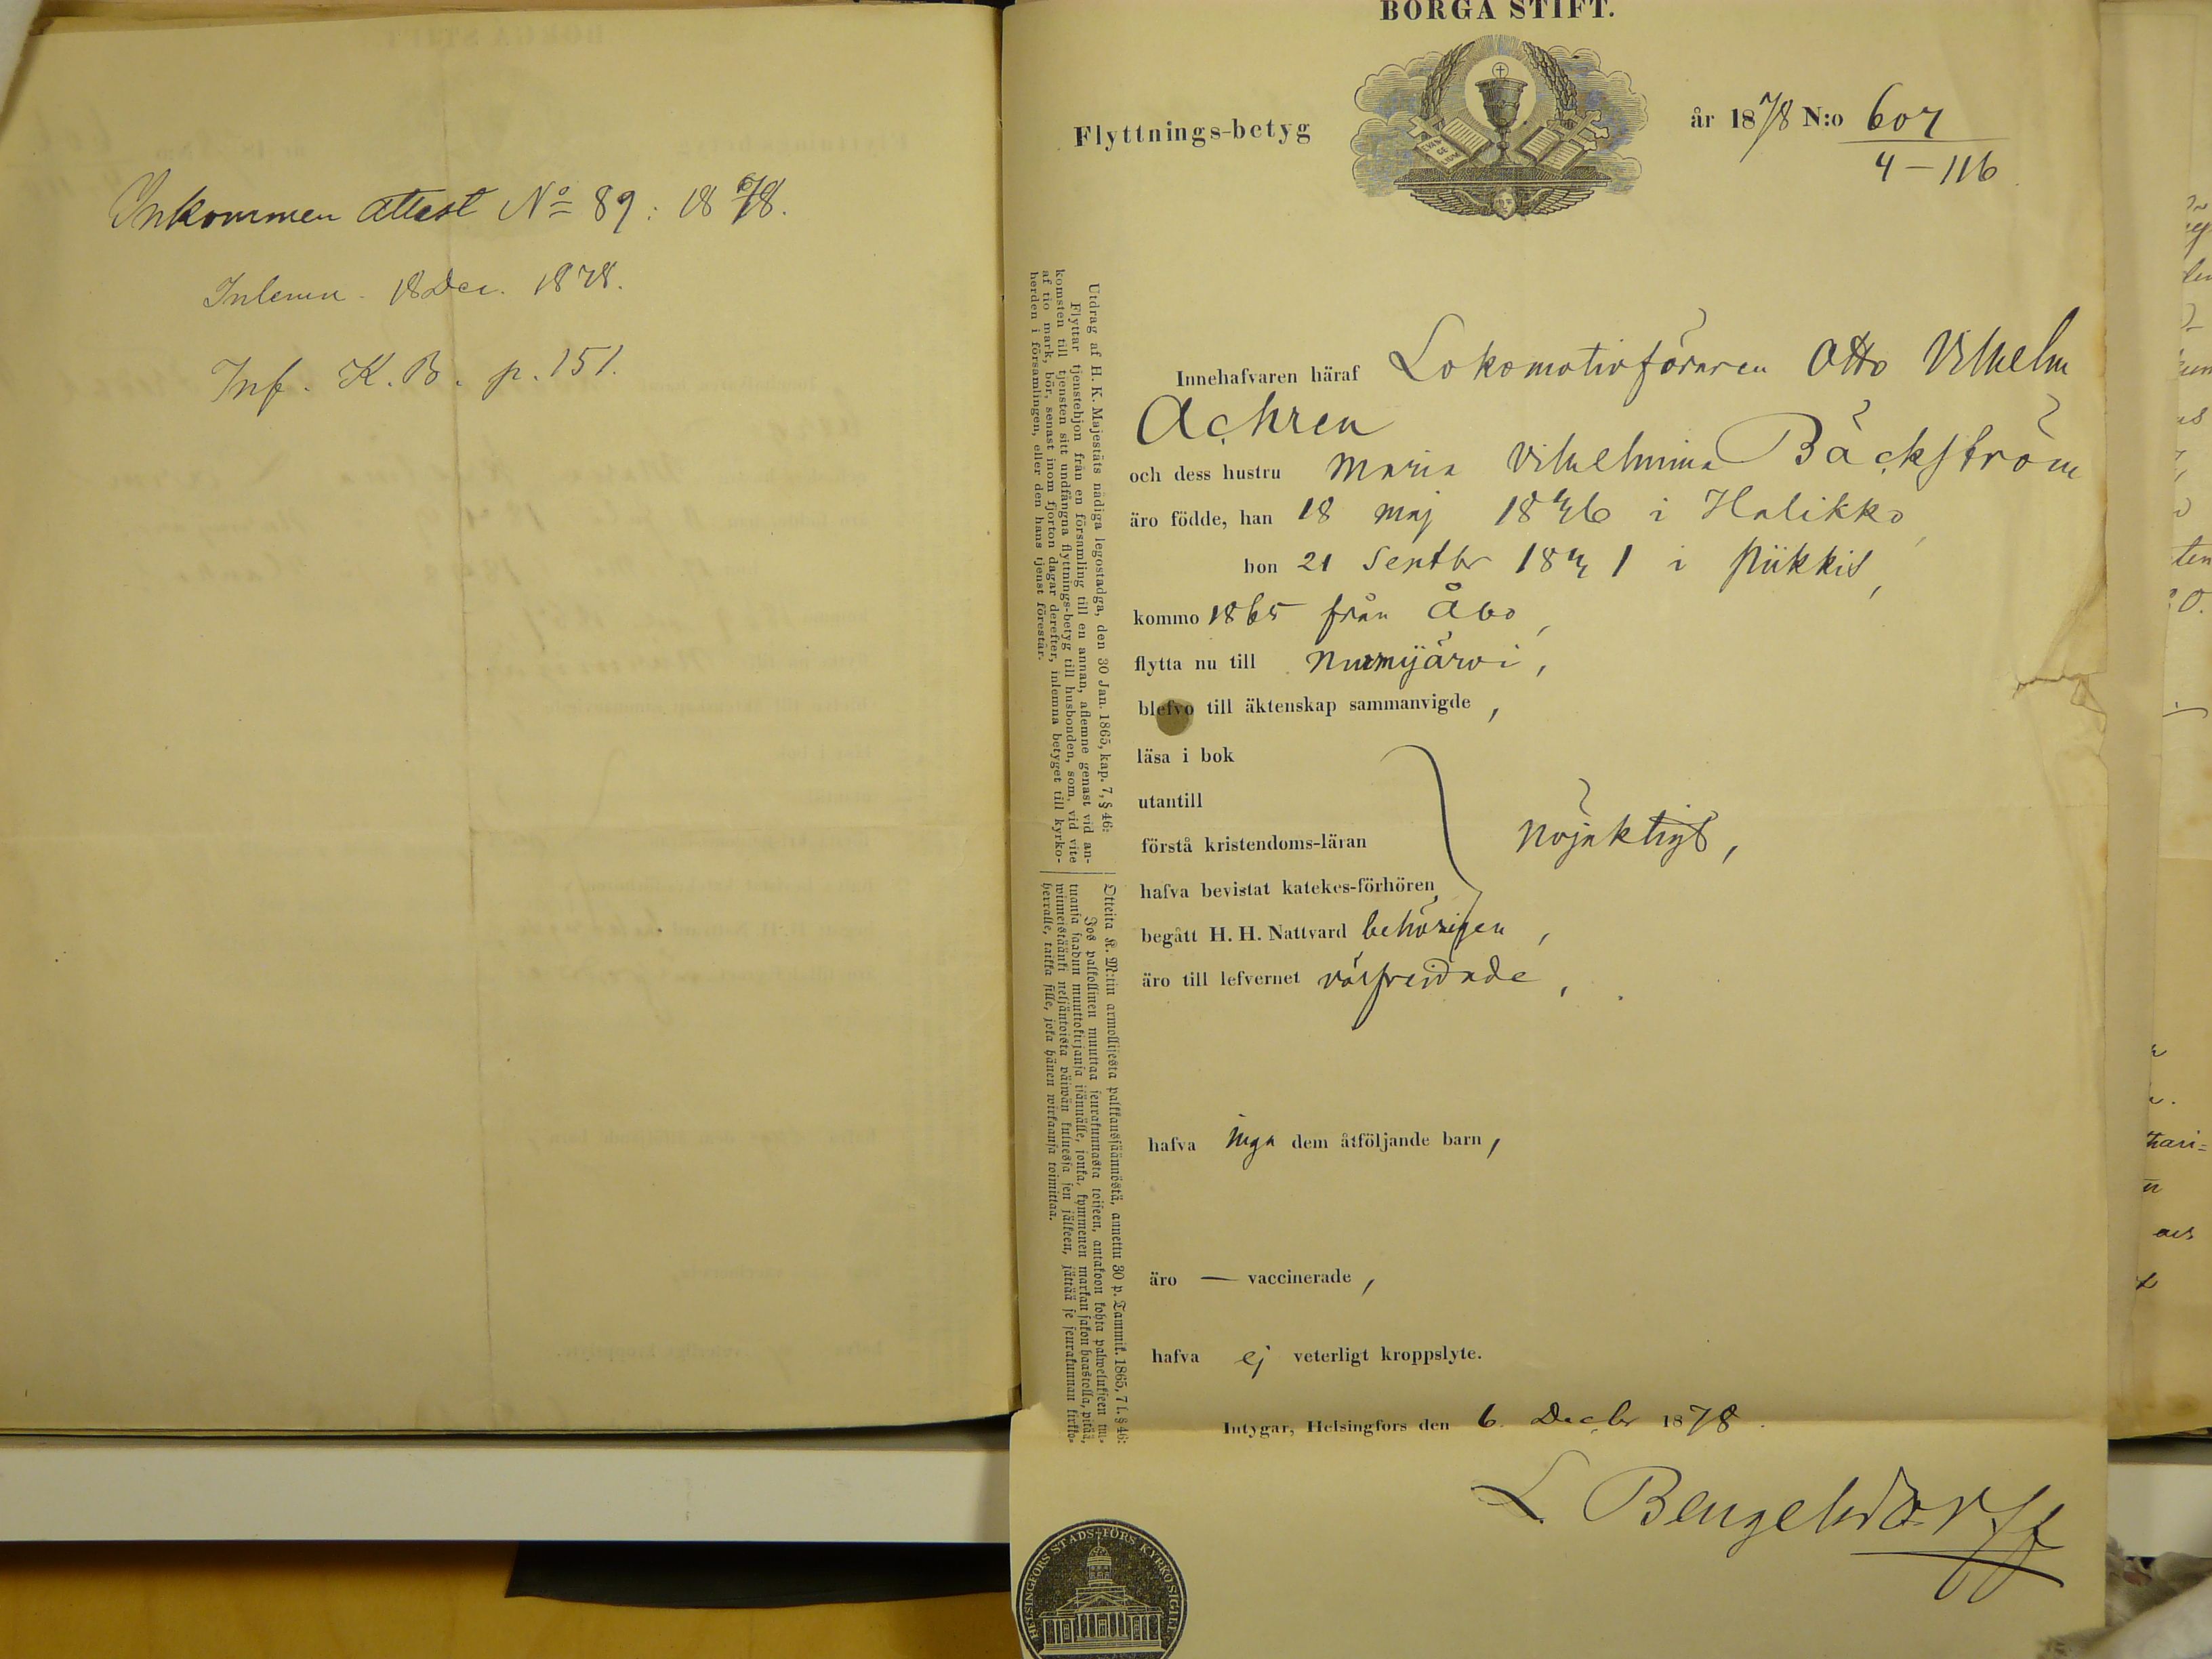 Inkommen attest No 89: 1878.
Inlemn. 18 Dec. 1878.
Inf. K. B. p. 151.
BORGÅ STIFT.
Flyttnings-betyg
år 1878 N:o 607
4-116
Innehafvaren häraf Lokomotivföraren Otto Vilhelm
Achrén
och dess hustru Maria Vilhelmina Bäckström
äro födde, han 18 maj 1846 i Halikko,
hon 21 Septbr 1841 i Piikkis,
kommo 1865 från Åbo,
flytta nu till Nurmijärvi,
blefvo till äktenskap sammanvigde,
läsa i bok
utantill
förstå kristendoms-läran
nöjaktigt,
hafva bevistat katekes-förhören
begått H. H. Nattvard behörigen,
äro till lefvernet välfrejdade,
hafva inga dem åtföljande barn,
äro — vaccinerade,
hafva ej veterligt kroppslyte.
Intygar, Helsingfors den 6. Decbr 1878.
L. Bengelsdorff
Utdrag af H. K. Majestäts nådiga legostadga, den 30 Jan. 1865, kap. 7, § 46:
Flyttar tjenstehjon från en församling till en annan, aflemne genast vid an-
komsten till tjensten sitt undfångna flyttnings-betyg till husbonden, som, vid vite
af tio mark, bör, senast inom fjorton dagar derefter, inlemna betyget till kyrko-
herden i församlingen, eller den hans tjenst förestår.
Otteita K. M:tin armollisesta palkkaussäännöstä, annettu 30 p. Tammik. 1865, 7 l. § 46:
Jos palkollinen muuttaa seurakunnasta toiseen, antakoon kohta palwelukseen tul-
tuansa saadun muuttokirjansa isännälle, jonka, kymmenen markan sakon haastolla, pitää,
wiimeistäänki neljäntoista päiwän kuluessa sen jälkeen, jättää se seurakunnan kirkko-
herralle, taikka sille, joka hänen wirkaansa toimittaa.
HELSINGFORS STADS FÖRS. KYRKO SIGILL